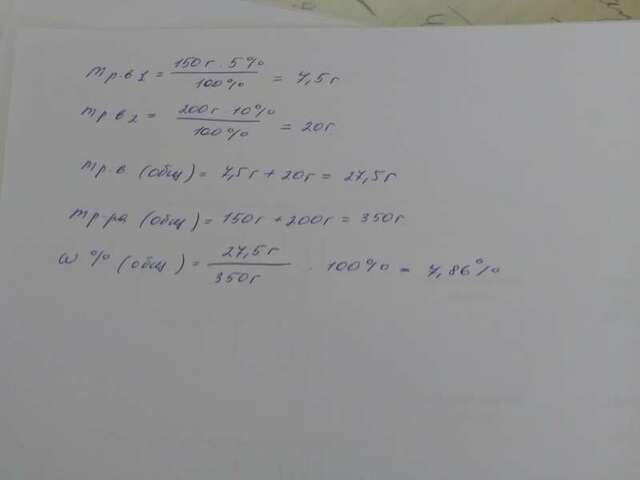 mр.в1 = 150г · 5% / 100% = 7,5г
mр.в2 = 200г · 10% / 100% = 20г
mр.в (общ) = 7,5г + 20г = 27,5г
mр-ра (общ) = 150г + 200г = 350г
ω % (общ.) = 27,5г / 350г · 100% = 7,86%